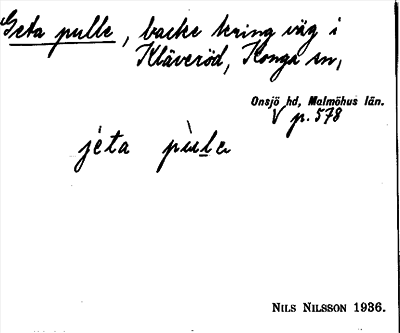 Geta pulle, backe kring väg i
Kläveröd, Konga sn,
Onsjö hd, Malmöhus län.
V p. 578
jèta pùlə
NILS NILSSON 1936.